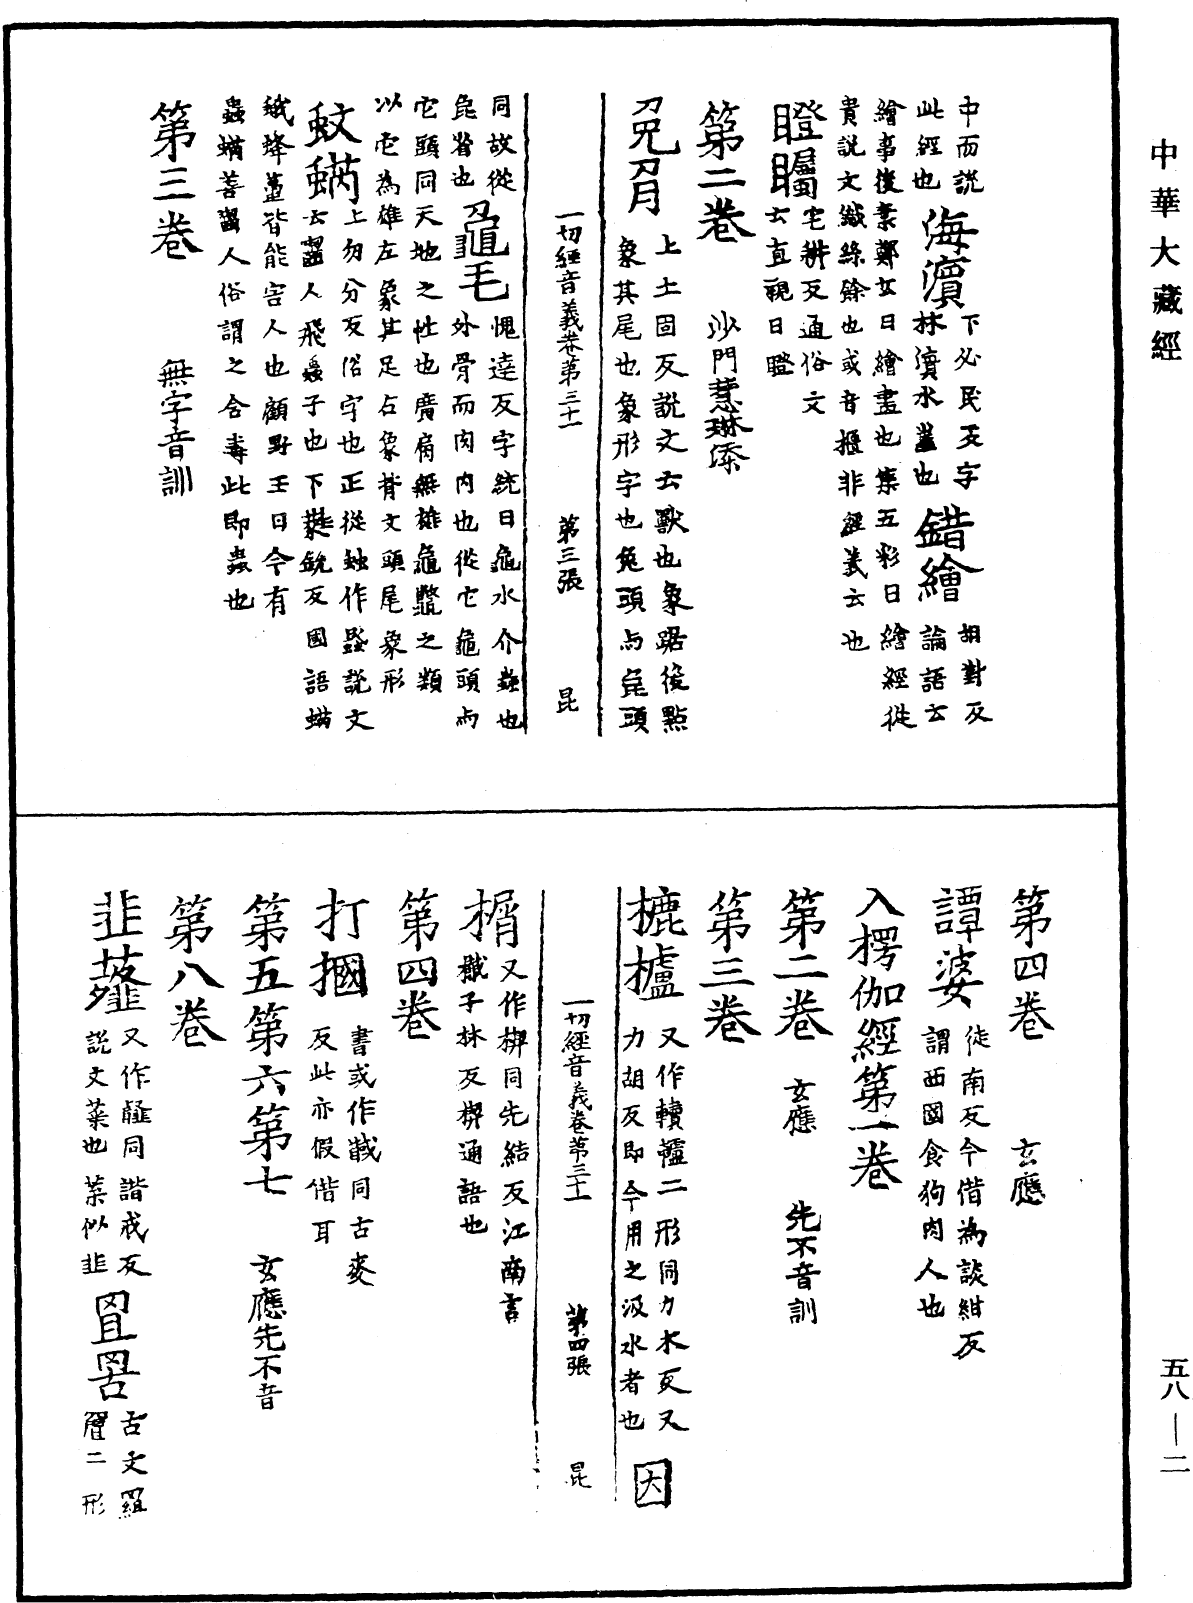 中華大藏經
五八—二
中而說
此經也
海濱
下必民反字
林濱水蓋也
錯繪
胡對反
論語云
繪事後素鄭玄曰繪畫也集五彩曰繪經從
貴說文織絲餘也或音摳非經義云也
瞪矚
宅耕反通俗文
云直視曰瞪
第二卷
沙門慧琳添
兔角
上土固反說文云獸也象踞後點
象其尾也象形字也兔頭与㲋頭
一切經音義卷第三十一
第三張
昆
同故從
㲋省也
龜毛
愧逵反字統曰龜水介蟲也
外骨而肉内也從它龜頭与
它頭同天地之性也廣肩無雄龜鼈之類
以它為雄左象其足右象背文頭尾象形
蚊蜹
上勿分反俗字也正從䖵作蟁說文
云齧人飛蟲子也下爇銳反國語蜹
蛾蜂蠆皆能害人也顧野王曰今有
蟲蜹善齧人俗謂之含毒此即蟲也
第三卷
無字音訓
第四卷
玄應
譚婆
徒南反今借為談紺反
謂西國食狗肉人也
入楞伽經第一卷
第二卷
玄應
先不音訓
第三卷
摝櫨
又作轒轤二形同力木反又
力胡反即今用之汲水者也
大
一切經音義卷第三十一
第四張
昆
榍
又作楔同先結反江南言
櫼子林反楔通語也
第四卷
打摑
書或作馘同古麥
反此亦假借耳
第五第六第七
玄應先不音
第八卷
韮䪥
又作薤同諧戒反
說文菜也菜似韮
罝罟
古文罝
二形